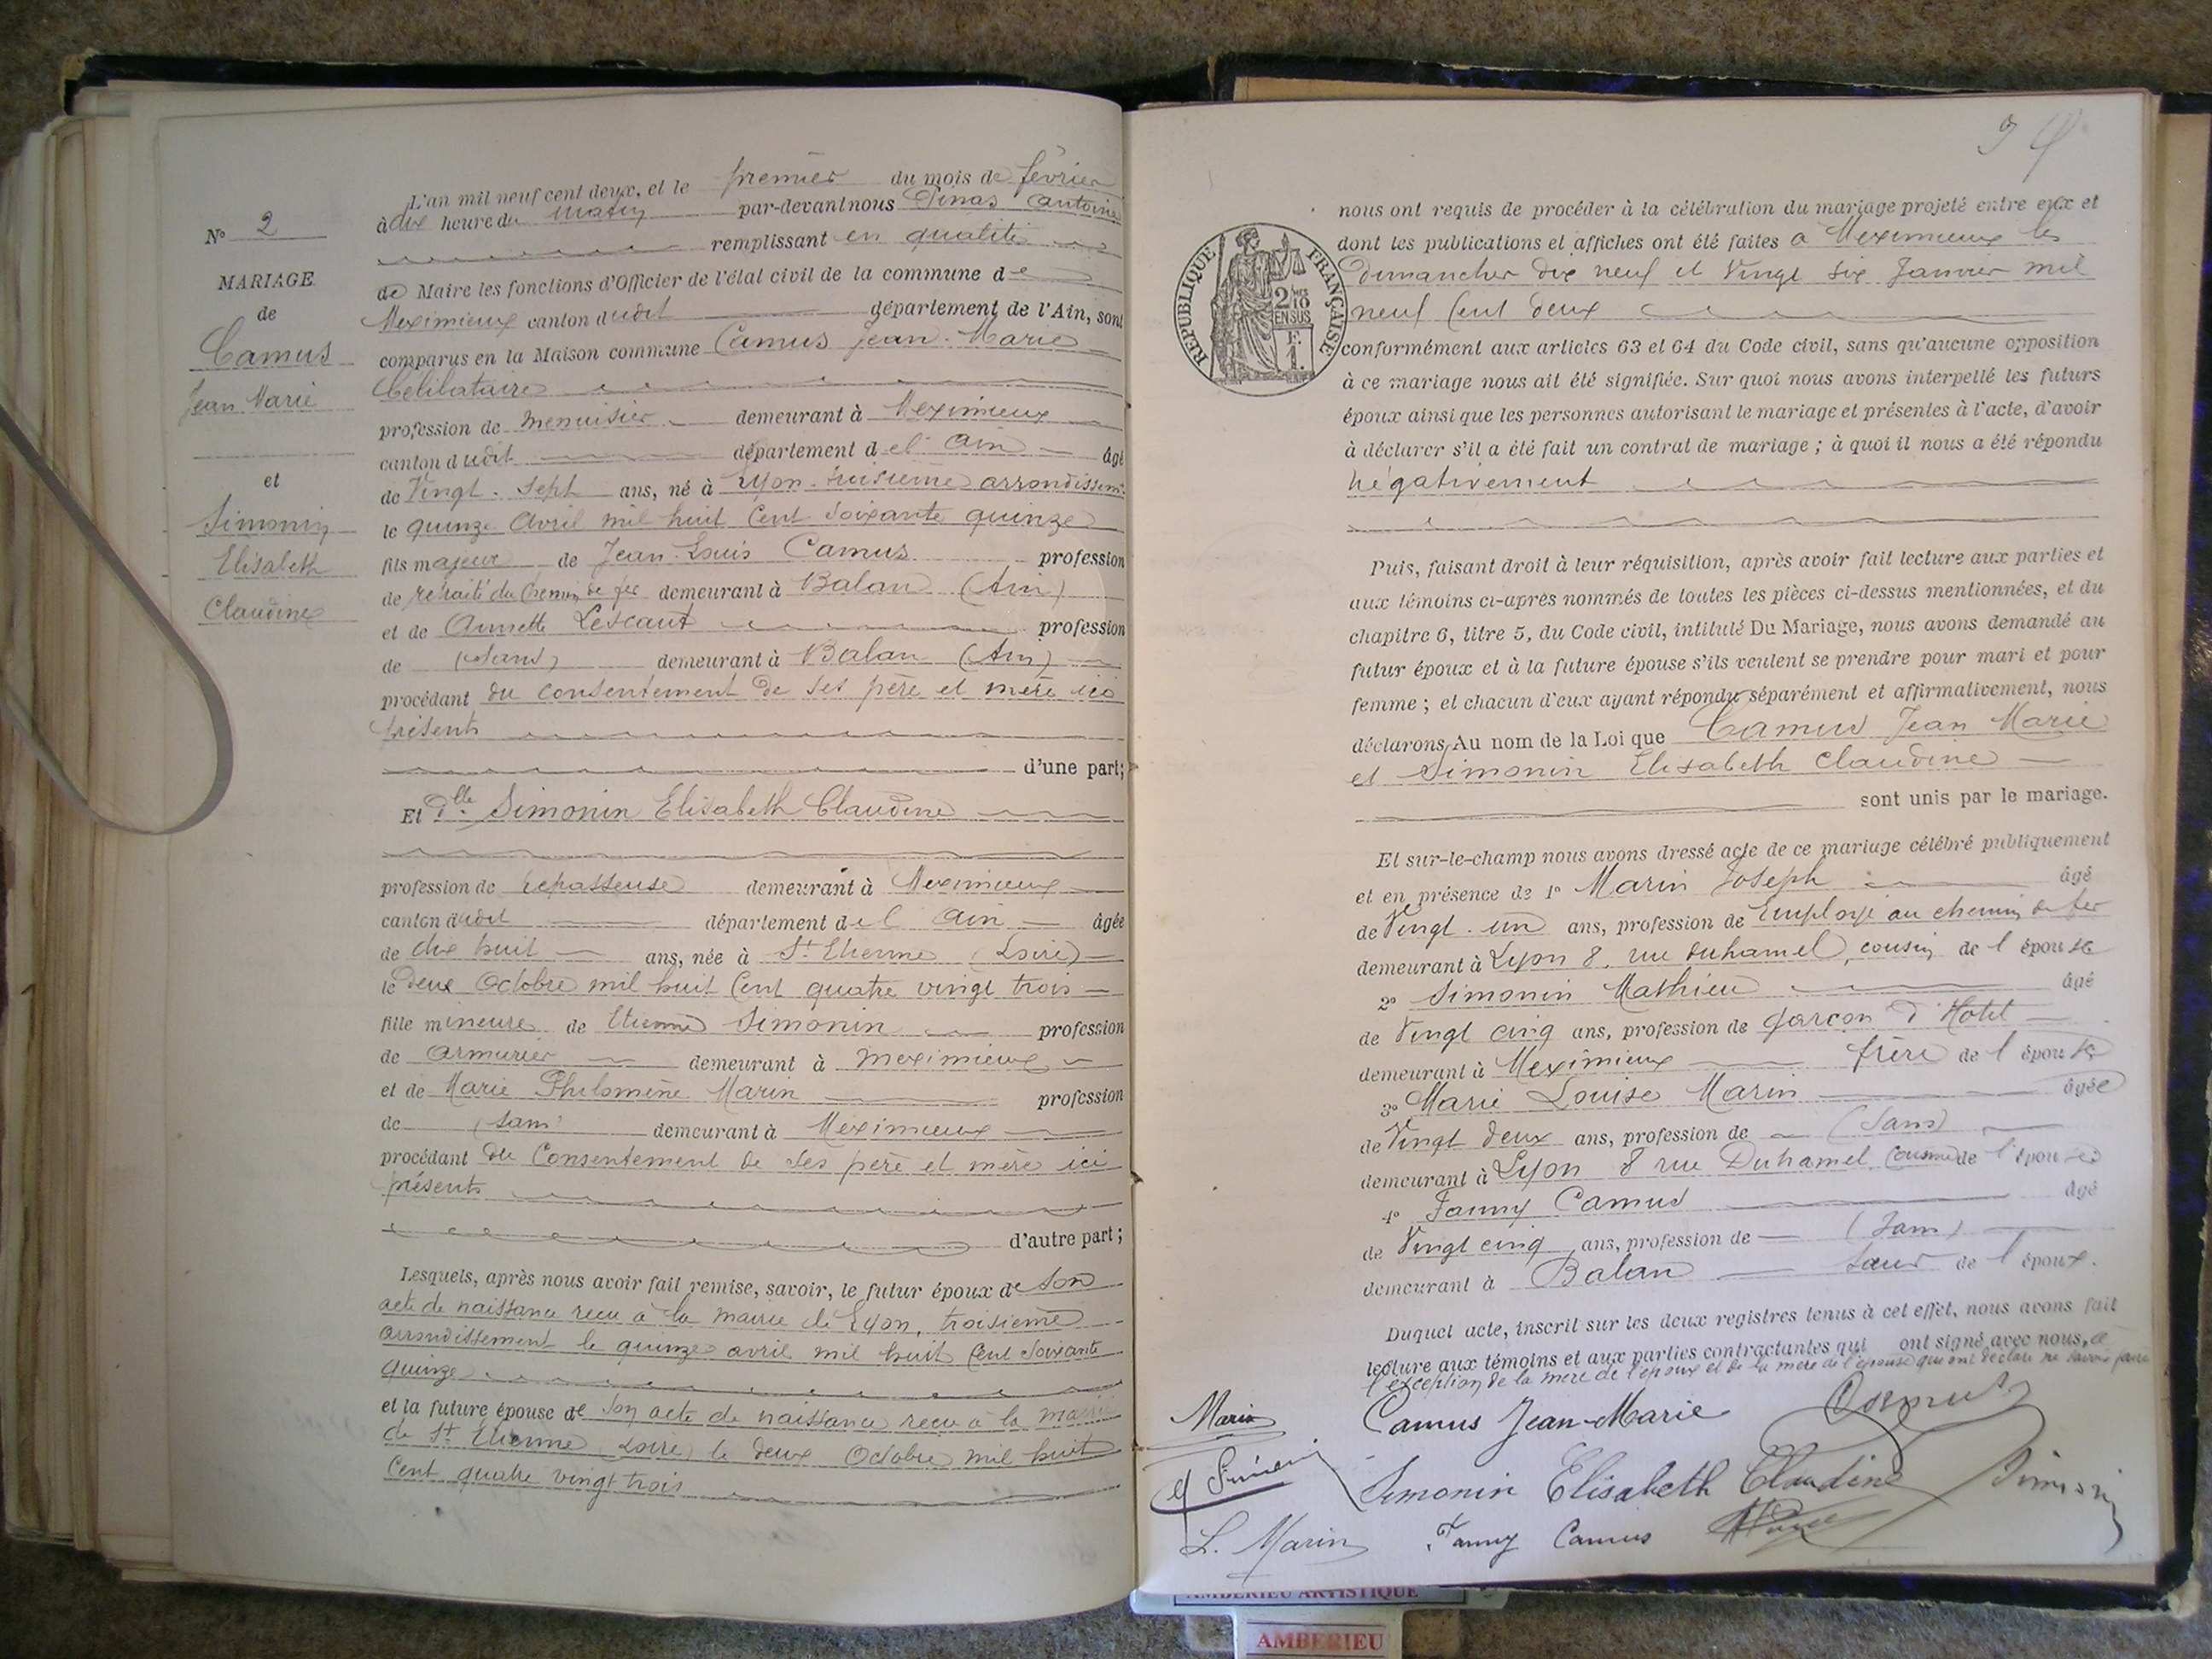 N° 2
MARIAGE
de
Camus
Jean Marie
et
Simonin
Elisabeth
Claudine
L'an mil neuf cent deux, et le premier du mois de février
à dix heure du matin par-devant nous Antoine
remplissant en qualité
de Maire les fonctions d'Officier de l'état civil de la commune de
Meximieux canton dudit département de l'Ain, sont
comparus en la Maison commune Camus Jean-Marie
Célibataire
profession de menuisier demeurant à Meximieux
canton dudit département de l'Ain âgé
de Vingt-sept ans, né à Lyon troisième arrondissemt
le quinze Avril mil huit Cent soixante quinze
fils majeur de Jean-Louis Camus profession
de retraité du Chemin de fer demeurant à Balan (Ain)
et de Annette Lescaut profession
de (sans) demeurant à Balan (Ain)
procédant du consentement de ses père et mère ici
présents
d'une part;
Et Dlle Simonin Elisabeth Claudine
profession de repasseuse demeurant à Meximieux
canton dudit département de l'Ain âgée
de dix huit ans, née à St Etienne (Loire)
le deux Octobre mil huit Cent quatre vingt trois
fille mineure de Etienne Simonin profession
de armurier demeurant à meximieux
et de Marie Philomène Marin profession
de (sans) demeurant à Meximieux
procédant du Consentement de ses père et mère ici
présents
d'autre part;
Lesquels, après nous avoir fait remise, savoir, le futur époux de son
acte de naissance reçu à la mairie de Lyon, troisième
arrondissement le quinze avril mil huit Cent soixante
quinze
et la future épouse de son acte de naissance reçu à la mairie
de St Etienne (Loire) le deux Octobre mil huit
Cent quatre vingt trois
REPUBLIQUE FRANÇAISE
2/10 EN SUS
F. 1.
nous ont requis de procéder à la célébration du mariage projeté entre eux et
dont les publications et affiches ont été faites à Meximieux les
dimanches dix neuf et Vingt six Janvier mil
neuf Cent deux
conformément aux articles 63 et 64 du Code civil, sans qu'aucune opposition
à ce mariage nous ait été signifiée. Sur quoi nous avons interpellé les futurs
époux ainsi que les personnes autorisant le mariage et présentes à l'acte, d'avoir
à déclarer s'il a été fait un contrat de mariage ; à quoi il nous a été répondu
négativement
Puis, faisant droit à leur réquisition, après avoir fait lecture aux parties et
aux témoins ci-après nommés de toutes les pièces ci-dessus mentionnées, et du
chapitre 6, titre 5, du Code civil, intitulé Du Mariage, nous avons demandé au
futur époux et à la future épouse s'ils veulent se prendre pour mari et pour
femme ; et chacun d'eux ayant répondu séparément et affirmativement, nous
déclarons Au nom de la Loi que Camus Jean Marie
et Simonin Elisabeth Claudine
sont unis par le mariage.
Et sur-le-champ nous avons dressé acte de ce mariage célébré publiquement
et en présence de 1° Marin Joseph âgé
de Vingt-un ans, profession de Employé au chemin de fer
demeurant à Lyon 8, rue Duhamel, cousin de l'épouse
2° Simonin Mathieu âgé
de Vingt cinq ans, profession de garçon d'Hotel
demeurant à Meximieux frère de l'épouse
3° Marie Louise Marin âgée
de Vingt deux ans, profession de (Sans)
demeurant à Lyon 8 rue Duhamel Cousine de l'épouse
4° Fanny Camus âgé
de Vingt cinq ans, profession de (Sans)
demeurant à Balan sœur de l'époux.
Duquel acte, inscrit sur les deux registres tenus à cet effet, nous avons fait
lecture aux témoins et aux parties contractantes qui ont signé avec nous, à
l'exception de la mère de l'époux et de la mère de l'épouse qui ont déclaré ne savoir faire
Marin Camus Jean-Marie
Simonin Elisabeth Claudine Simonin
L. Marin Fanny Camus
AMBERIEU ARTISTIQUE
AMBERIEU